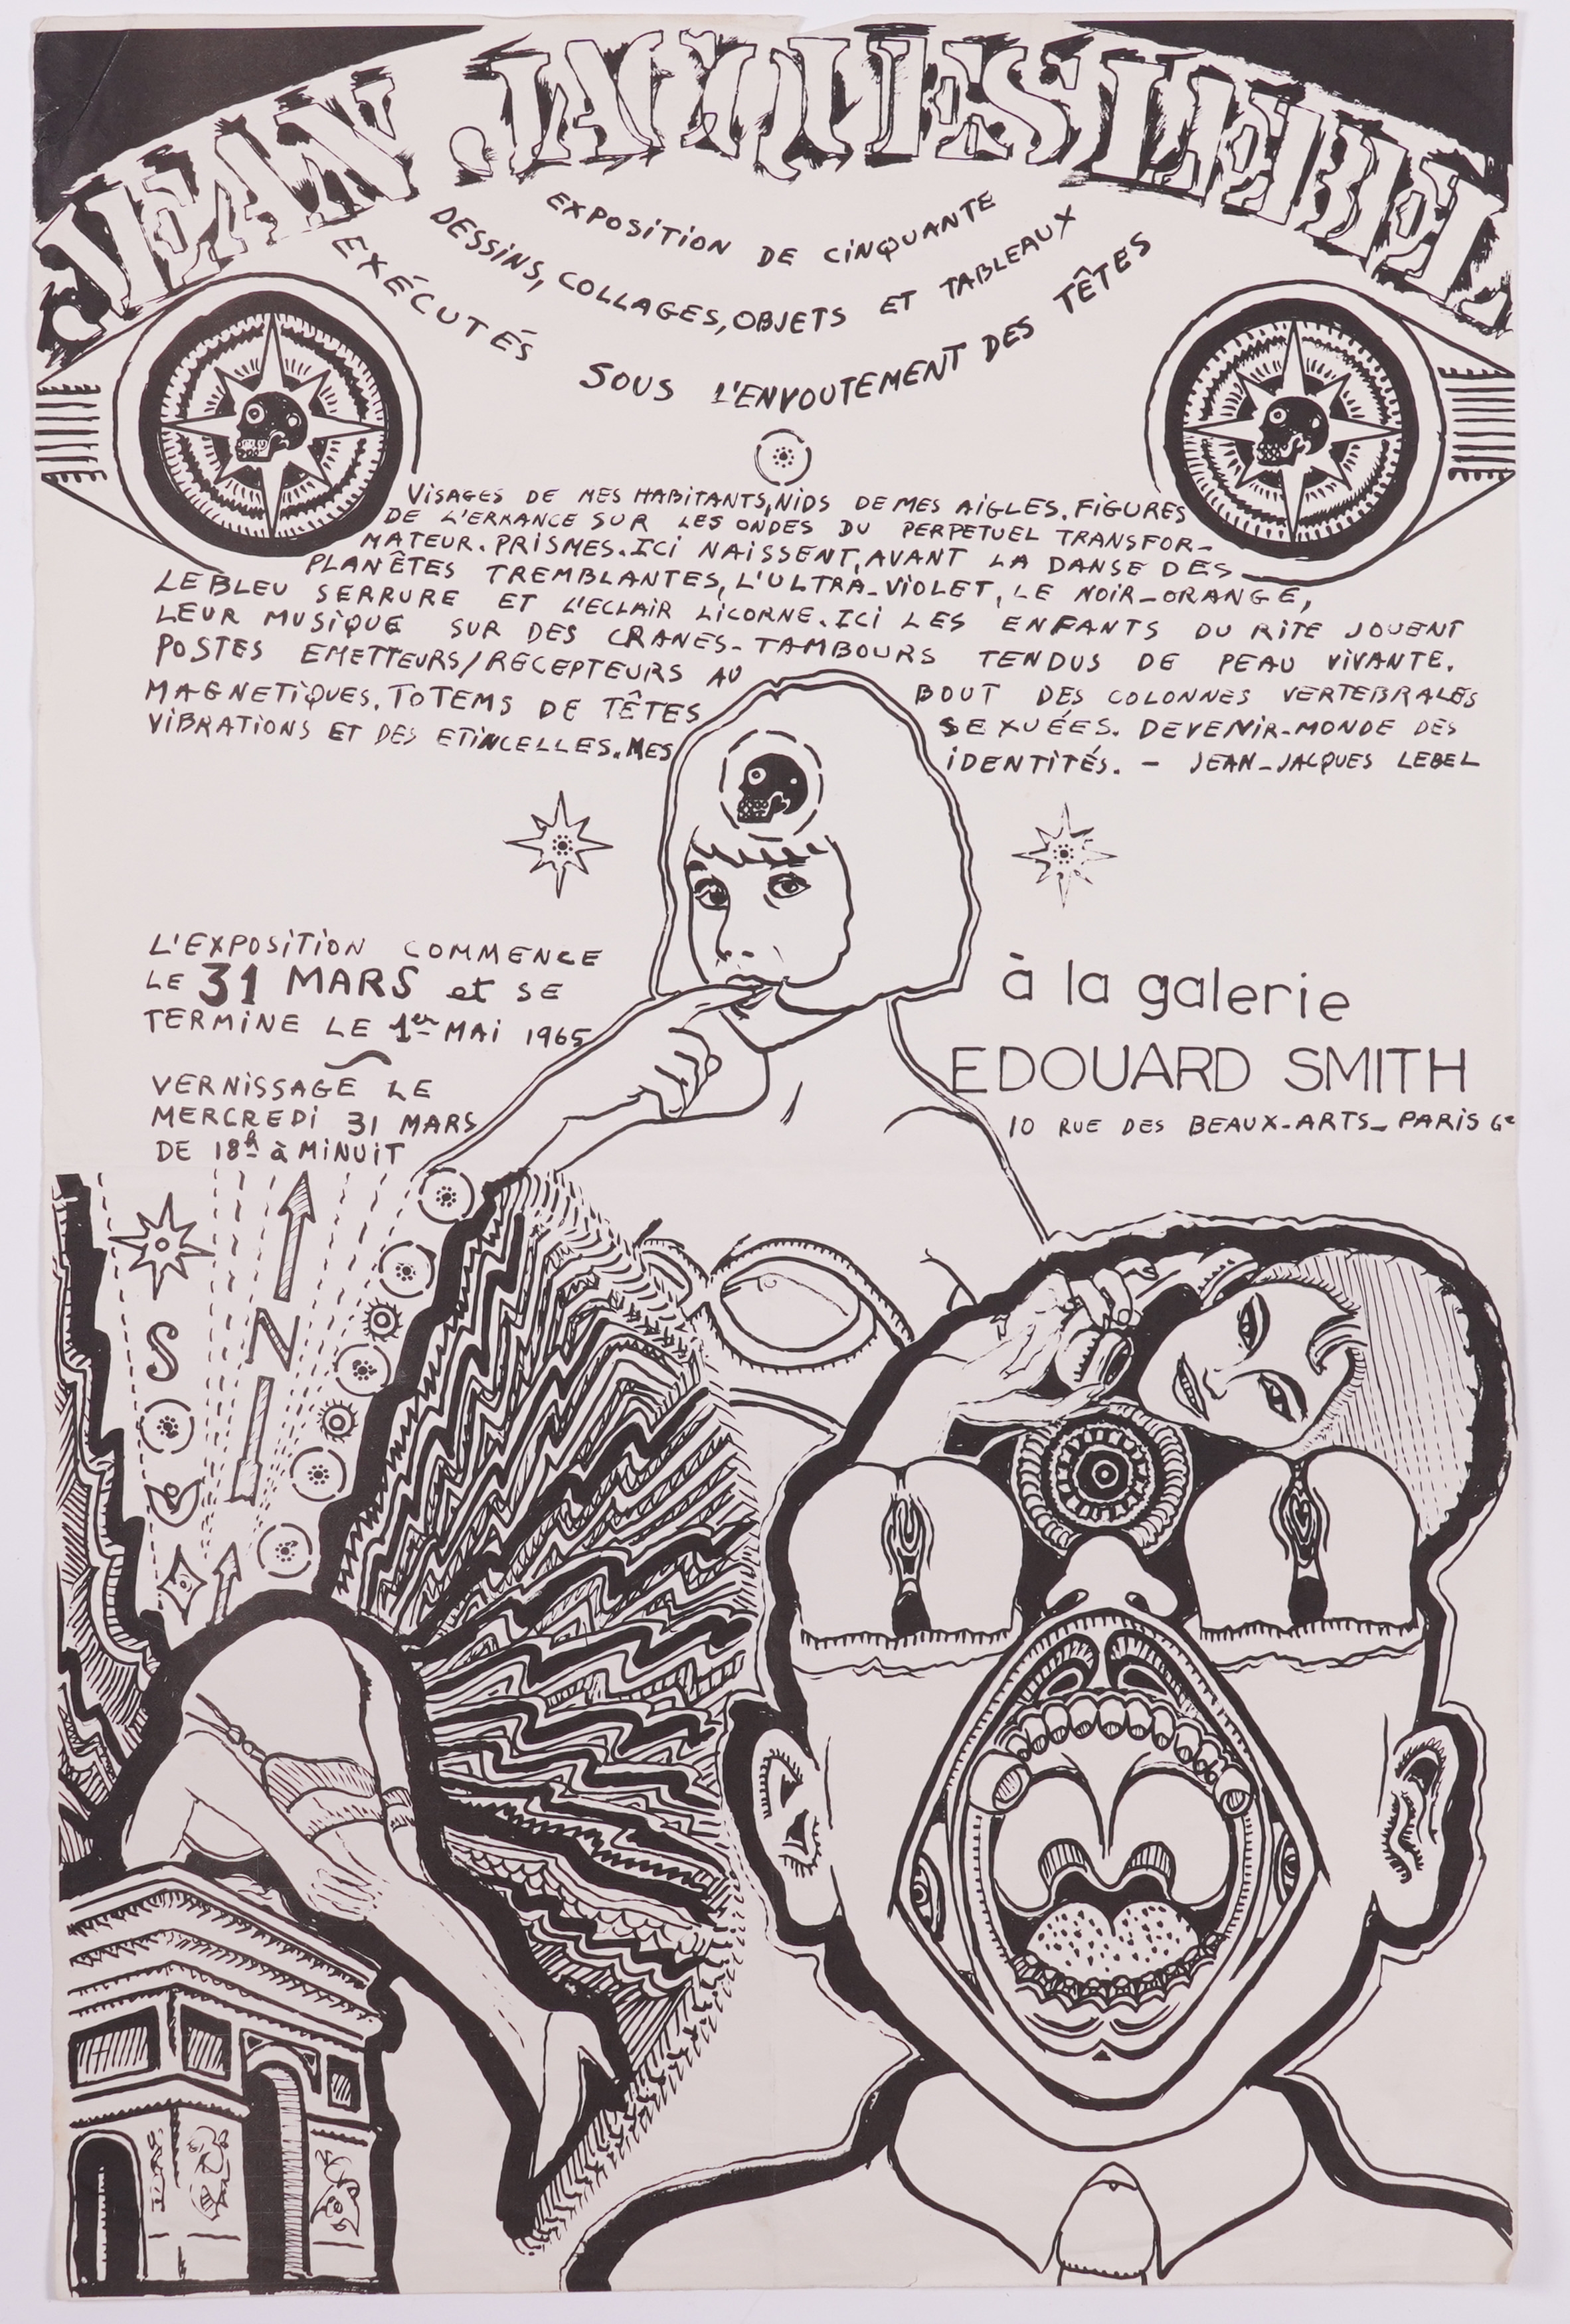 JEAN JACQUES LEBEL
EXPOSITION DE CINQUANTE
DESSINS, COLLAGES, OBJETS ET TABLEAUX
EXÉCUTÉS SOUS L'ENVOUTEMENT DES TÊTES
VISAGES DE MES HABITANTS, NIDS DE MES AIGLES. FIGURES
DE L'ERRANCE SUR LES ONDES DU PERPETUEL TRANSFOR-
MATEUR. PRISMES. ICI NAISSENT, AVANT LA DANSE DES
PLANÊTES TREMBLANTES, L'ULTRA-VIOLET, LE NOIR-ORANGE,
LE BLEU SERRURE ET L'ECLAIR LICORNE. ICI LES ENFANTS DU RITE JOUENT
LEUR MUSIQUE SUR DES CRANES-TAMBOURS TENDUS DE PEAU VIVANTE.
POSTES EMETTEURS/RECEPTEURS AU BOUT DES COLONNES VERTEBRALES
MAGNETIQUES. TOTEMS DE TÊTES SEXUÉES. DEVENIR-MONDE DES
VIBRATIONS ET DES ETINCELLES. MES IDENTITÉS. - JEAN-JACQUES LEBEL
L'EXPOSITION COMMENCE
LE 31 MARS et SE
TERMINE LE 1er MAI 1965
VERNISSAGE LE
MERCREDI 31 MARS
DE 18h à MINUIT
à la galerie
EDOUARD SMITH
10 RUE DES BEAUX-ARTS - PARIS 6e
S N